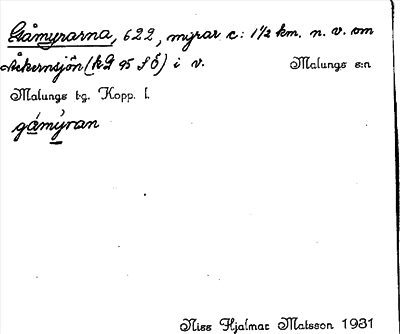 Gåmyrarna, 622, myrar c: 1½ km. n. v. om
Åkernsjön (kG 95 f ö) i v. Malungs s:n
Malungs t·g. Kopp. l.
gåmýran
Niss Hjalmar Matsson 1931